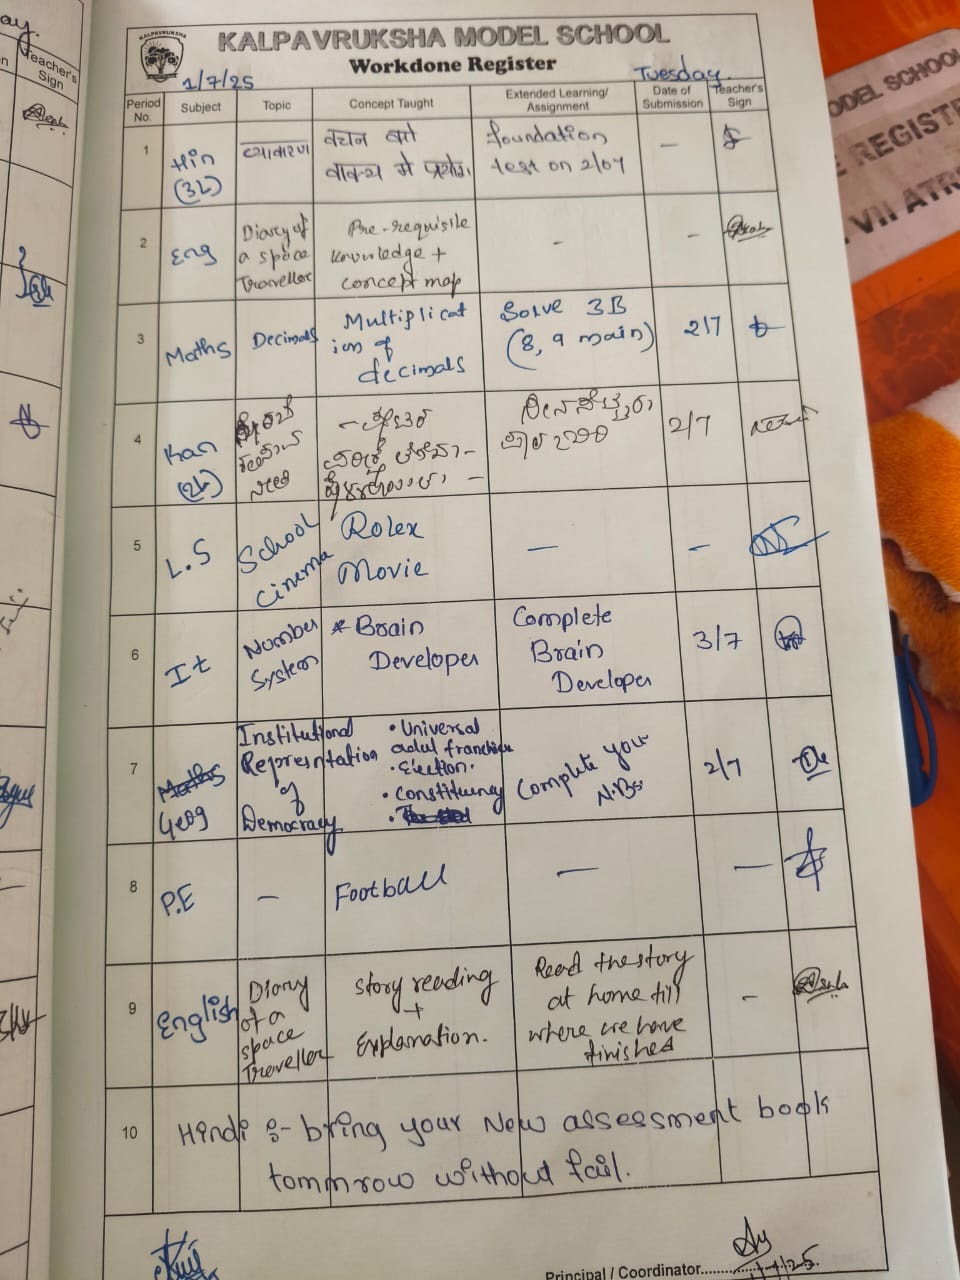 KALPAVRUKSHA MODEL SCHOOL
Workdone Register
1/7/25 Tuesday
Period No. Subject Topic Concept Taught Extended Learning/ Assignment Date of Submission Teacher's Sign
1 Hin (3L) व्याकरण वचन का वाक्य मे प्रयोग. foundation test on 2/07 —
2 Eng Diary of a space Traveller Pre-requisite knowledge + concept map - -
3 Maths Decimals Multiplicat ion of decimals Solve 3B (8, 9 main) 2/7
4 Kan (2L) 2/7
5 L.S School cinema Rolex Movie — –
6 It Number System * Brain Developer Complete Brain Developer 3/7
7 Geog Institutional Represntation of Democracy • Universal adul franchise • Election. • Constituency Complete your N.Bs. 2/7
8 P.E – Football — —
9 English Diary of a space Traveller Story reading + Explanation. Read the story at home till where we have finished -
10 Hindi :- bring your New assessment book
tommrow without fail.
Principal / Coordinator
Teacher's Sign
MODEL SCHOOL
REGISTE
VII ATR